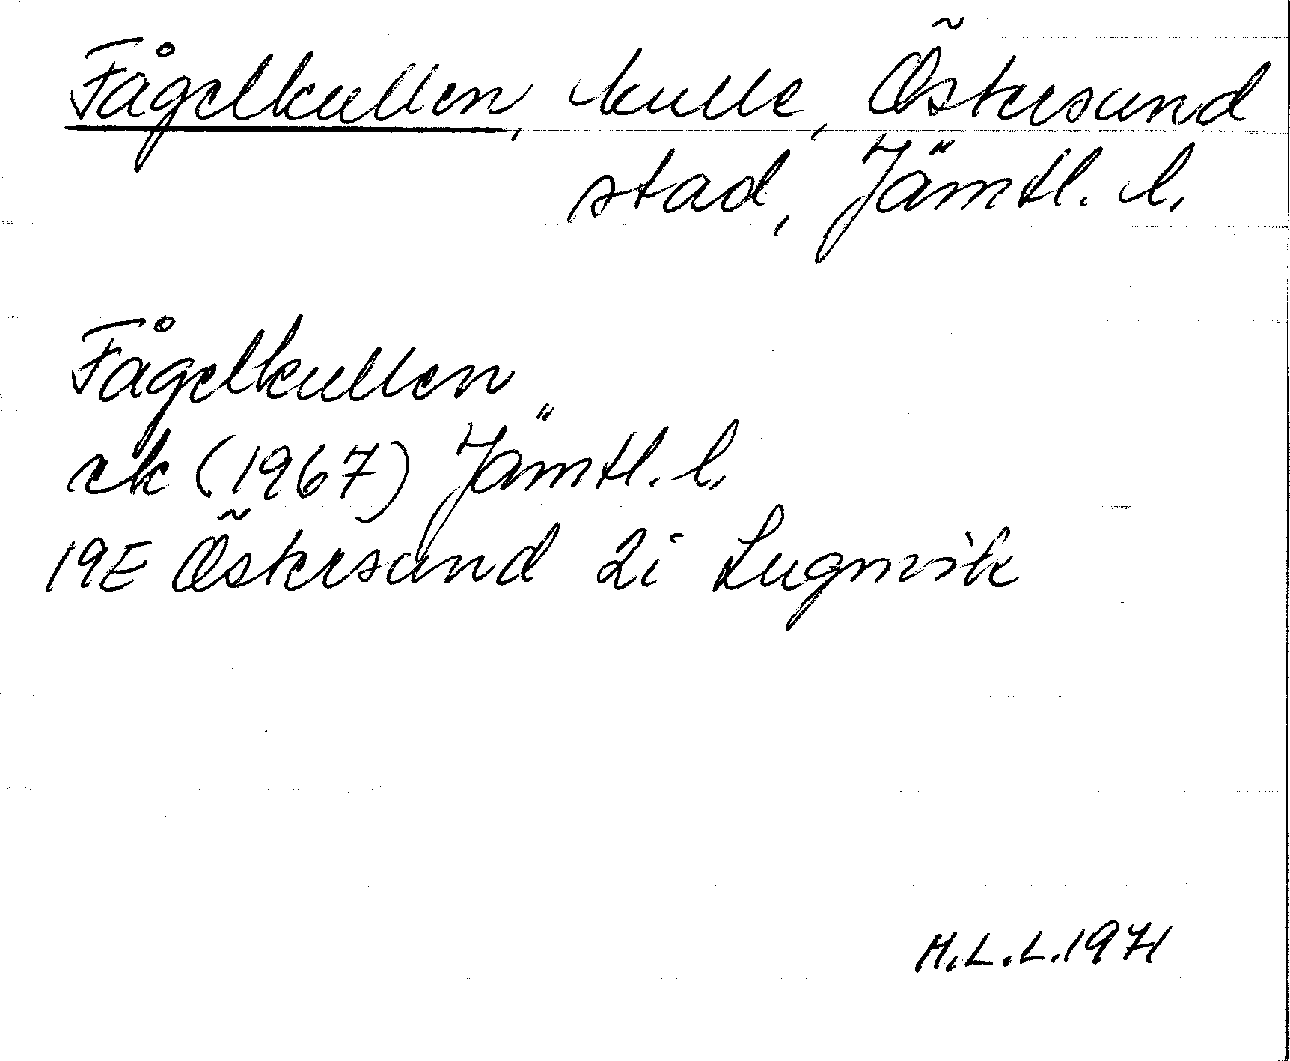 Fågelkullen, kulle, Östersund
stad, Jämtl. l.
Fågelkullen
ek (1967) Jämtl. l.
19E Östersund 2i Lugnvik
M.L.L.1971